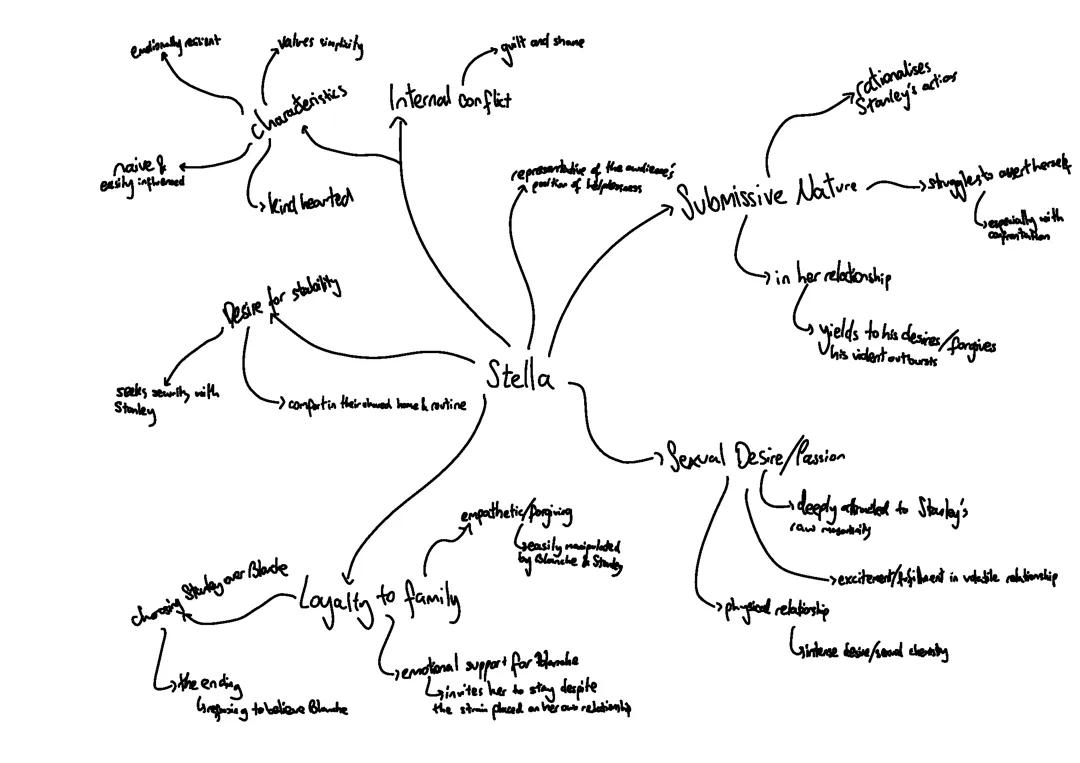 emotionally resilient
values simplicity
guilt and shame
Internal conflict
Characteristics
naive &
easily influenced
kind hearted
representative of the audience's
position of helplessness
rationalises
Stanley's actions
Submissive Nature
struggles to assert herself
especially with
confrontation
in her relationship
yields to his desires/forgives
his violent outbursts
Desire for stability
seeks security with
Stanley
comfort in their shared home & routine
Stella
Sexual Desire/Passion
deeply attracted to Stanley's
raw masculinity
excitement/fulfillment in volatile relationship
physical relationship
intense desire/sexual chemistry
empathetic/forgiving
easily manipulated
by Blanche & Stanley
Loyalty to family
choosing Stanley over Blanche
the ending
refusing to believe Blanche
emotional support for Blanche
invites her to stay despite
the strain placed on her own relationship